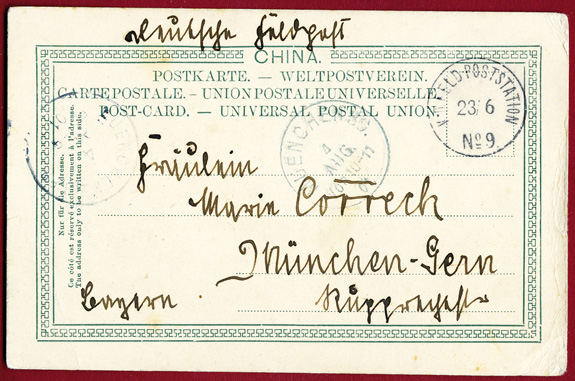 Deutsche Feldpost
CHINA.
POSTKARTE. — WELTPOSTVEREIN.
CARTE POSTALE. - UNION POSTALE UNIVERSELLE.
POST-CARD. — UNIVERSAL POSTAL UNION.
K.D. FELD-POSTSTATION
23/6
No 9.
MUENCHEN
4
AUG.
Nur für die Adresse.
Ce côté est réservé exclusivement à l'adresse.
The address only to be written on this side.
Fräulein
Marie Correck
München-Gern
Bayern.
Rupprechtstr